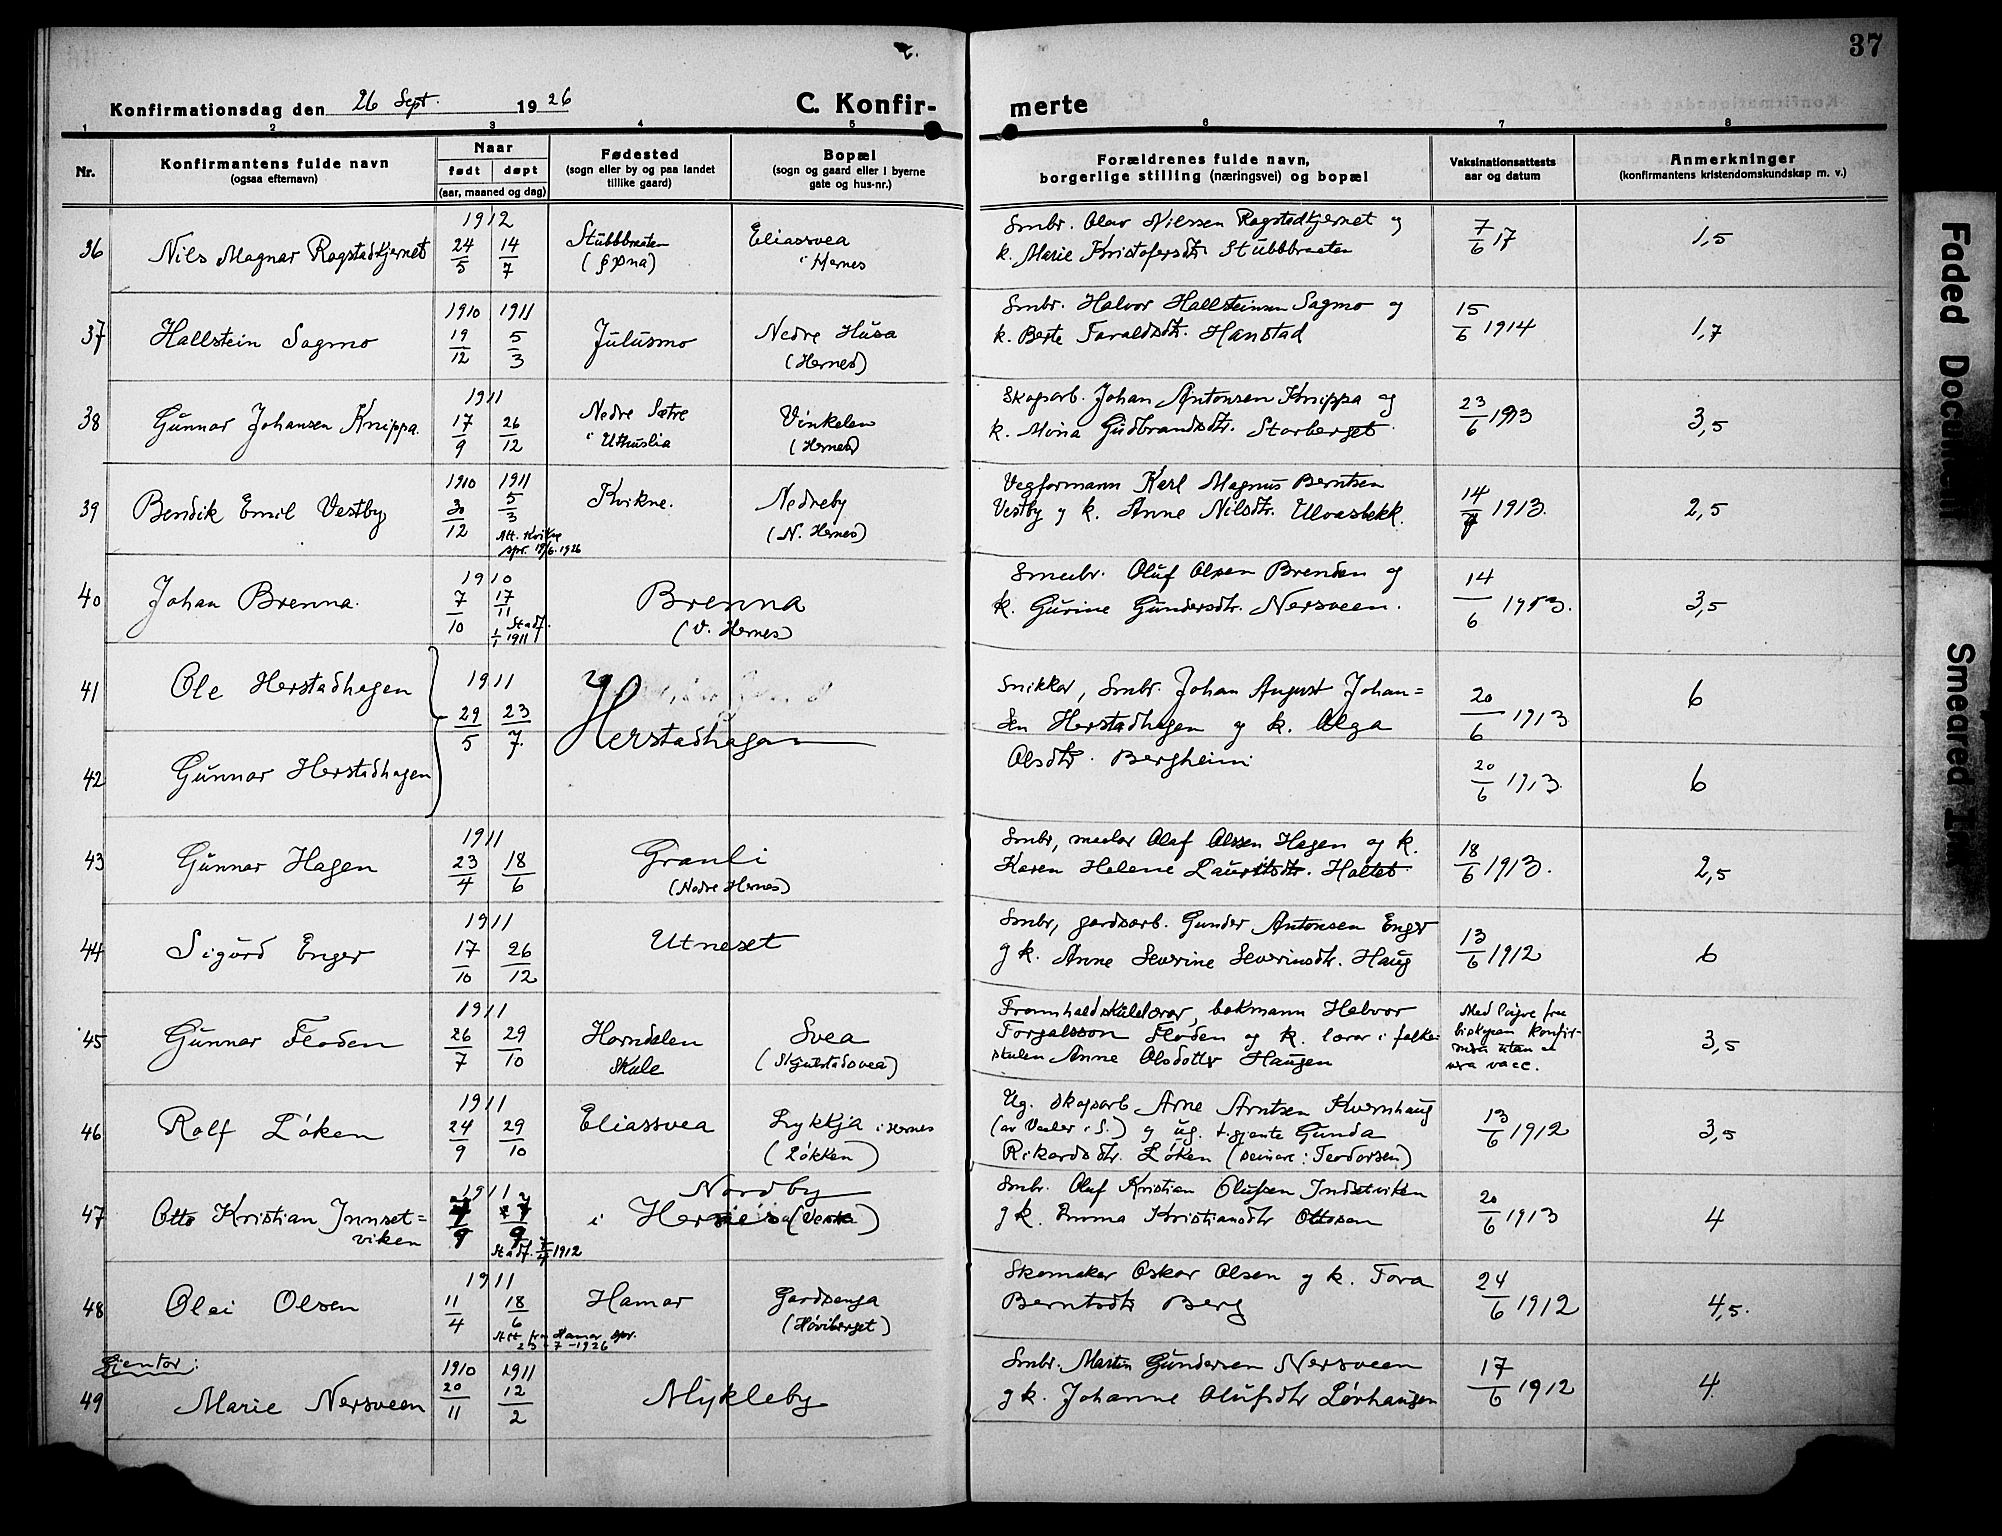 37
Konfirmationsdag den 26 Sept. 1926
C. Konfir-
merte
1 2 3 4 5 6 7 8
Nr.
Konfirmantens fulde navn
(ogsaa efternavn)
Naar
født døpt
(aar, maaned og dag)
Fødested
(sogn eller by og paa landet
tillike gaard)
Bopæl
(sogn og gaard eller i byerne
gate og hus-nr.)
Forældrenes fulde navn,
borgerlige stilling (næringsvei) og bopæl
Vaksinationsattests
aar og datum
Anmerkninger
(konfirmantens kristendomskundskap m. v.)
36 Nils Magnar Rogstadkjernet
1912
24/5 14/7
Stubbbraaten
Eliassvea
i Hernes
Smbr. Olav Nilssen Rogstadkjernet og
k. Marie Kristofersdtr. Stubbbraaten
7/6 17
1,5
37 Hallstein Sagmo
1910 1911
19/12 5/3
Julusmo
Nedre Husa
(Hernes)
Smbr. Halvor Hallsteinsen Sagmo og
k. Berte Taraldsdtr. Hanstad
15/6 1914
1,7
38 Gunnar Johansen Knippa.
1911
17/9 26/12
Nedre Sætre
i Uthuslia
Vinkelen
(Hernes)
Skogsarb. Johan Antonsen Knippa og
k. Mina Gudbrandsdtr. Storberget
23/6 1913
3,5
39 Bendik Emil Vestby
1910 1911
30/12 5/3
Att. Kvikne
spr. 19/6.1926
Kvikne.
Nedreby
(N. Hernes)
Vegformann Karl Magnus Berntsen
Vestby og k. Anne Nilsdtr. Ulvasbekk.
14/ 1913.
2,5
40 Johan Brenna.
1910
7/10 17/11
Stadf.
1/1 1911
Brenna
(V. Hernes)
Smeabr. Oluf Olsen Brenden og
k. Gurine Gundersdtr. Nersveen.
14/6 1913.
3,5
41 Ole Herstadhagen
1911
29/5 23/7.
Herstadhagen
Snikker, Smbr. Johan August Johan=
sen Herstadhagen og k. Olga
Olsdtr. Bergheim
20/6 1913
6
42 Gunnar Herstadhagen
20/6 1913.
6
43 Gunnar Hagen
1911
23/4 18/6
Granli
(Nedre Hernes)
Smbr, maalar Olaf Olssen Hagen og k.
Karen Helene Lauritsdtr. Holtet
18/6 1913.
2,5
44 Sigurd Enger
1911
17/10 26/12
Utneset
Smbr, gardsarb. Gunder Antonsen Enger
og k. Anne Severine Severinsdtr. Haug
13/6 1912
6
45 Gunnar Floden
1911
26/7 29/10
Horndalen
Skule
Svea
Framhaldskulelærar, bokmann Halvor
Torgalsson Floden og k. lærar i folke-
skulen Anne Olsdotter Haugen
Med løyve fraa
biskopen konfir-
mera utan aa
vera vacc.
3,5
46 Rolf Løken
1911
24/9 29/10
Eliassvea
Lykkja i Hernes
(Løkken)
Ug. skogsarb Arne Arntsen Kvernhaug
(av Vaaler i S.) og ug. tjente Gunda
Rikardsdtr. Løken (seinare: Teodorsen)
13/6 1912
3,5
47 Otto Kristian Innset=
viken
1911
Stadf. 1912
Nordby
i Hernes (Vestre)
Smbr. Oluf Kristian Olufsen Indsetviken
og k. Emma Kristiansdtr Ottosen
20/6 1913
4
48 Olei Olsen
1911
11/4 18/6
Att. fra Hamar spr.
23-7-1926
Hamar
Gardsenga
(Høviberget)
Skomaker Oskar Olsen og k. Tora
Berntsdtr Berg
24/6 1912
4,5.
Gjentor:
49 Marie Nersveen
1910 1911
20/11 12/2
Mykleby
Smbr. Martin Gundersen Nersveen
og k. Johanne Olufsdtr Lørhaugen
17/6 1912
4.
Faded Document
Smeared Ink